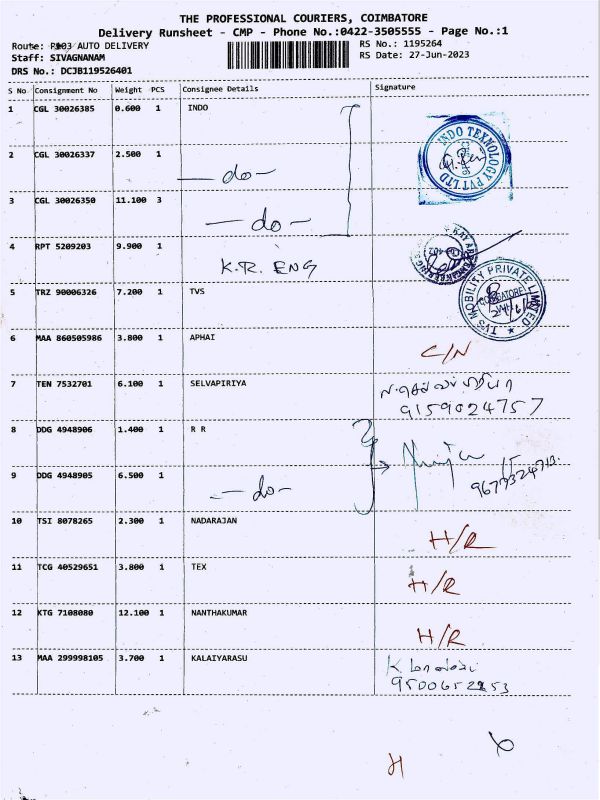 THE PROFESSIONAL COURIERS, COIMBATORE
Delivery Runsheet - CMP - Phone No.:0422-3505555 - Page No.:1
Route: P303 AUTO DELIVERY RS No.: 1195264
Staff: SIVAGNANAM RS Date: 27-Jun-2023
DRS No.: DCJB119526401
S No Consignment No Weight PCS Consignee Details Signature
1 CGL 30026385 0.600 1 INDO
INDO TEXNOLOGY PVT LTD
2 CGL 30026337 2.500 1 -do-
3 CGL 30026350 11.100 3 -do-
4 RPT 5209203 9.900 1 K.R. ENG
5 TRZ 90006326 7.200 1 TVS
TVS MOBILITY PRIVATE LIMITED
COIMBATORE
6 MAA 860505986 3.800 1 APHAI C/N
7 TEN 7532701 6.100 1 SELVAPIRIYA ந.செல்வப்பிரியா
9159024757
8 DDG 4948906 1.400 1 R R
9 DDG 4948905 6.500 1 -do-
10 TSI 8078265 2.300 1 NADARAJAN H/R
11 TCG 40529651 3.800 1 TEX H/R
12 KTG 7108080 12.100 1 NANTHAKUMAR H/R
13 MAA 299998105 3.700 1 KALAIYARASU